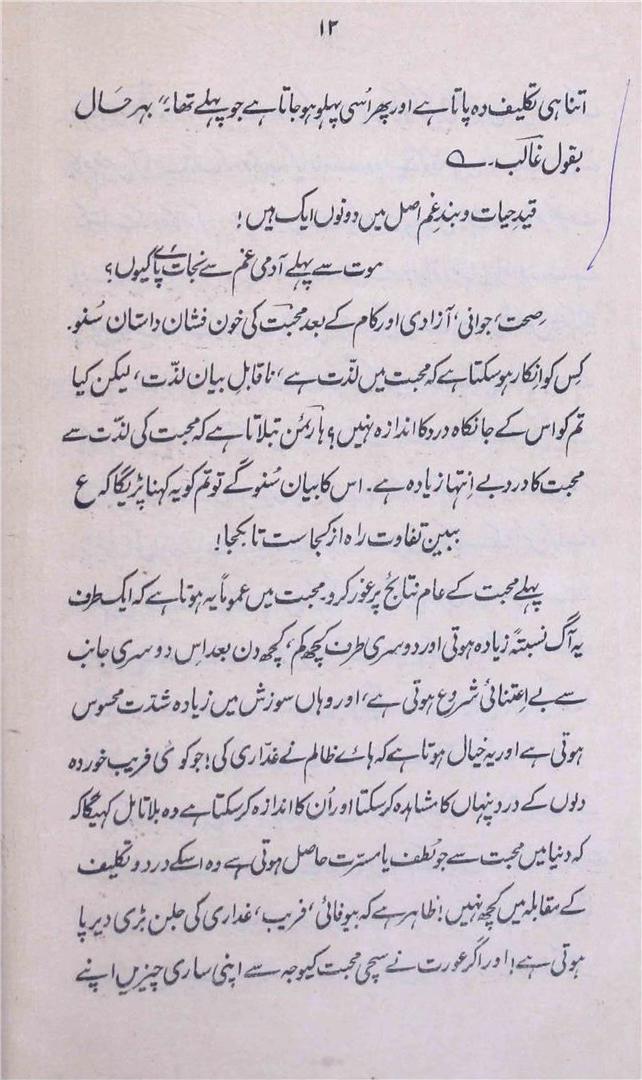 ۱۲
اتنا ہی تکلیف دہ پاتا ہے اور پھر اُسی پہلو ہو جاتا ہے جو پہلے تھا۔" بہر حال
بقول غالب۔ ے
قیدِ حیات و بندِ غم اصل میں دونوں ایک ہیں!
موت سے پہلے آدمی غم سے نجات پائے کیوں؟
صحت، جوانی، آزادی اور کام کے بعد محبت کی خون فشان داستان سُنو۔
کِس کو اِنکار ہو سکتا ہے کہ محبت میں لذّت ہے، ناقابلِ بیان لذّت، لیکن کیا
تم کو اس کے جانکاہ درد کا اندازہ نہیں؟ ہارٹمن بتلاتا ہے کہ محبت کی لذّت سے
محبت کا درد بے اِنتہا زیادہ ہے۔ اس کا بیان سُنو گے تو تم کو یہ کہنا پڑیگا کہ ع
ببین تفاوت راہ از کجاست تا بکجا!
پہلے محبت کے عام نتائج پر غور کرو۔ محبت میں عموماً یہ ہوتا ہے کہ ایک طرف
یہ آگ نسبتہً زیادہ ہوتی اور دوسری طرف کچھ کم، کچھ دن بعد اِس دوسری جانب
سے بے اِعتنائی شروع ہوتی ہے، اور وہاں سوزش میں زیادہ شدّت محسوس
ہوتی ہے اور یہ خیال ہوتا ہے کہ ہائے ظالم نے غدّاری کی! جو کوئی فریب خوردہ
دلوں کے دردِ پنہاں کا مشاہدہ کر سکتا اور اُن کا اندازہ کر سکتا ہے وہ بلا تامل کہیگا کہ
کہ دنیا میں محبت سے جو لُطف یا مسرّت حاصل ہوتی ہے وہ اسکے درد و تکلیف
کے مقابلہ میں کچھ نہیں! ظاہر ہے کہ بیوفائی، فریب، غداری کی جلن بڑی دیر پا
ہوتی ہے! اور اگر عورت نے سچی محبت کیوجہ سے اپنی ساری چیزیں اپنے